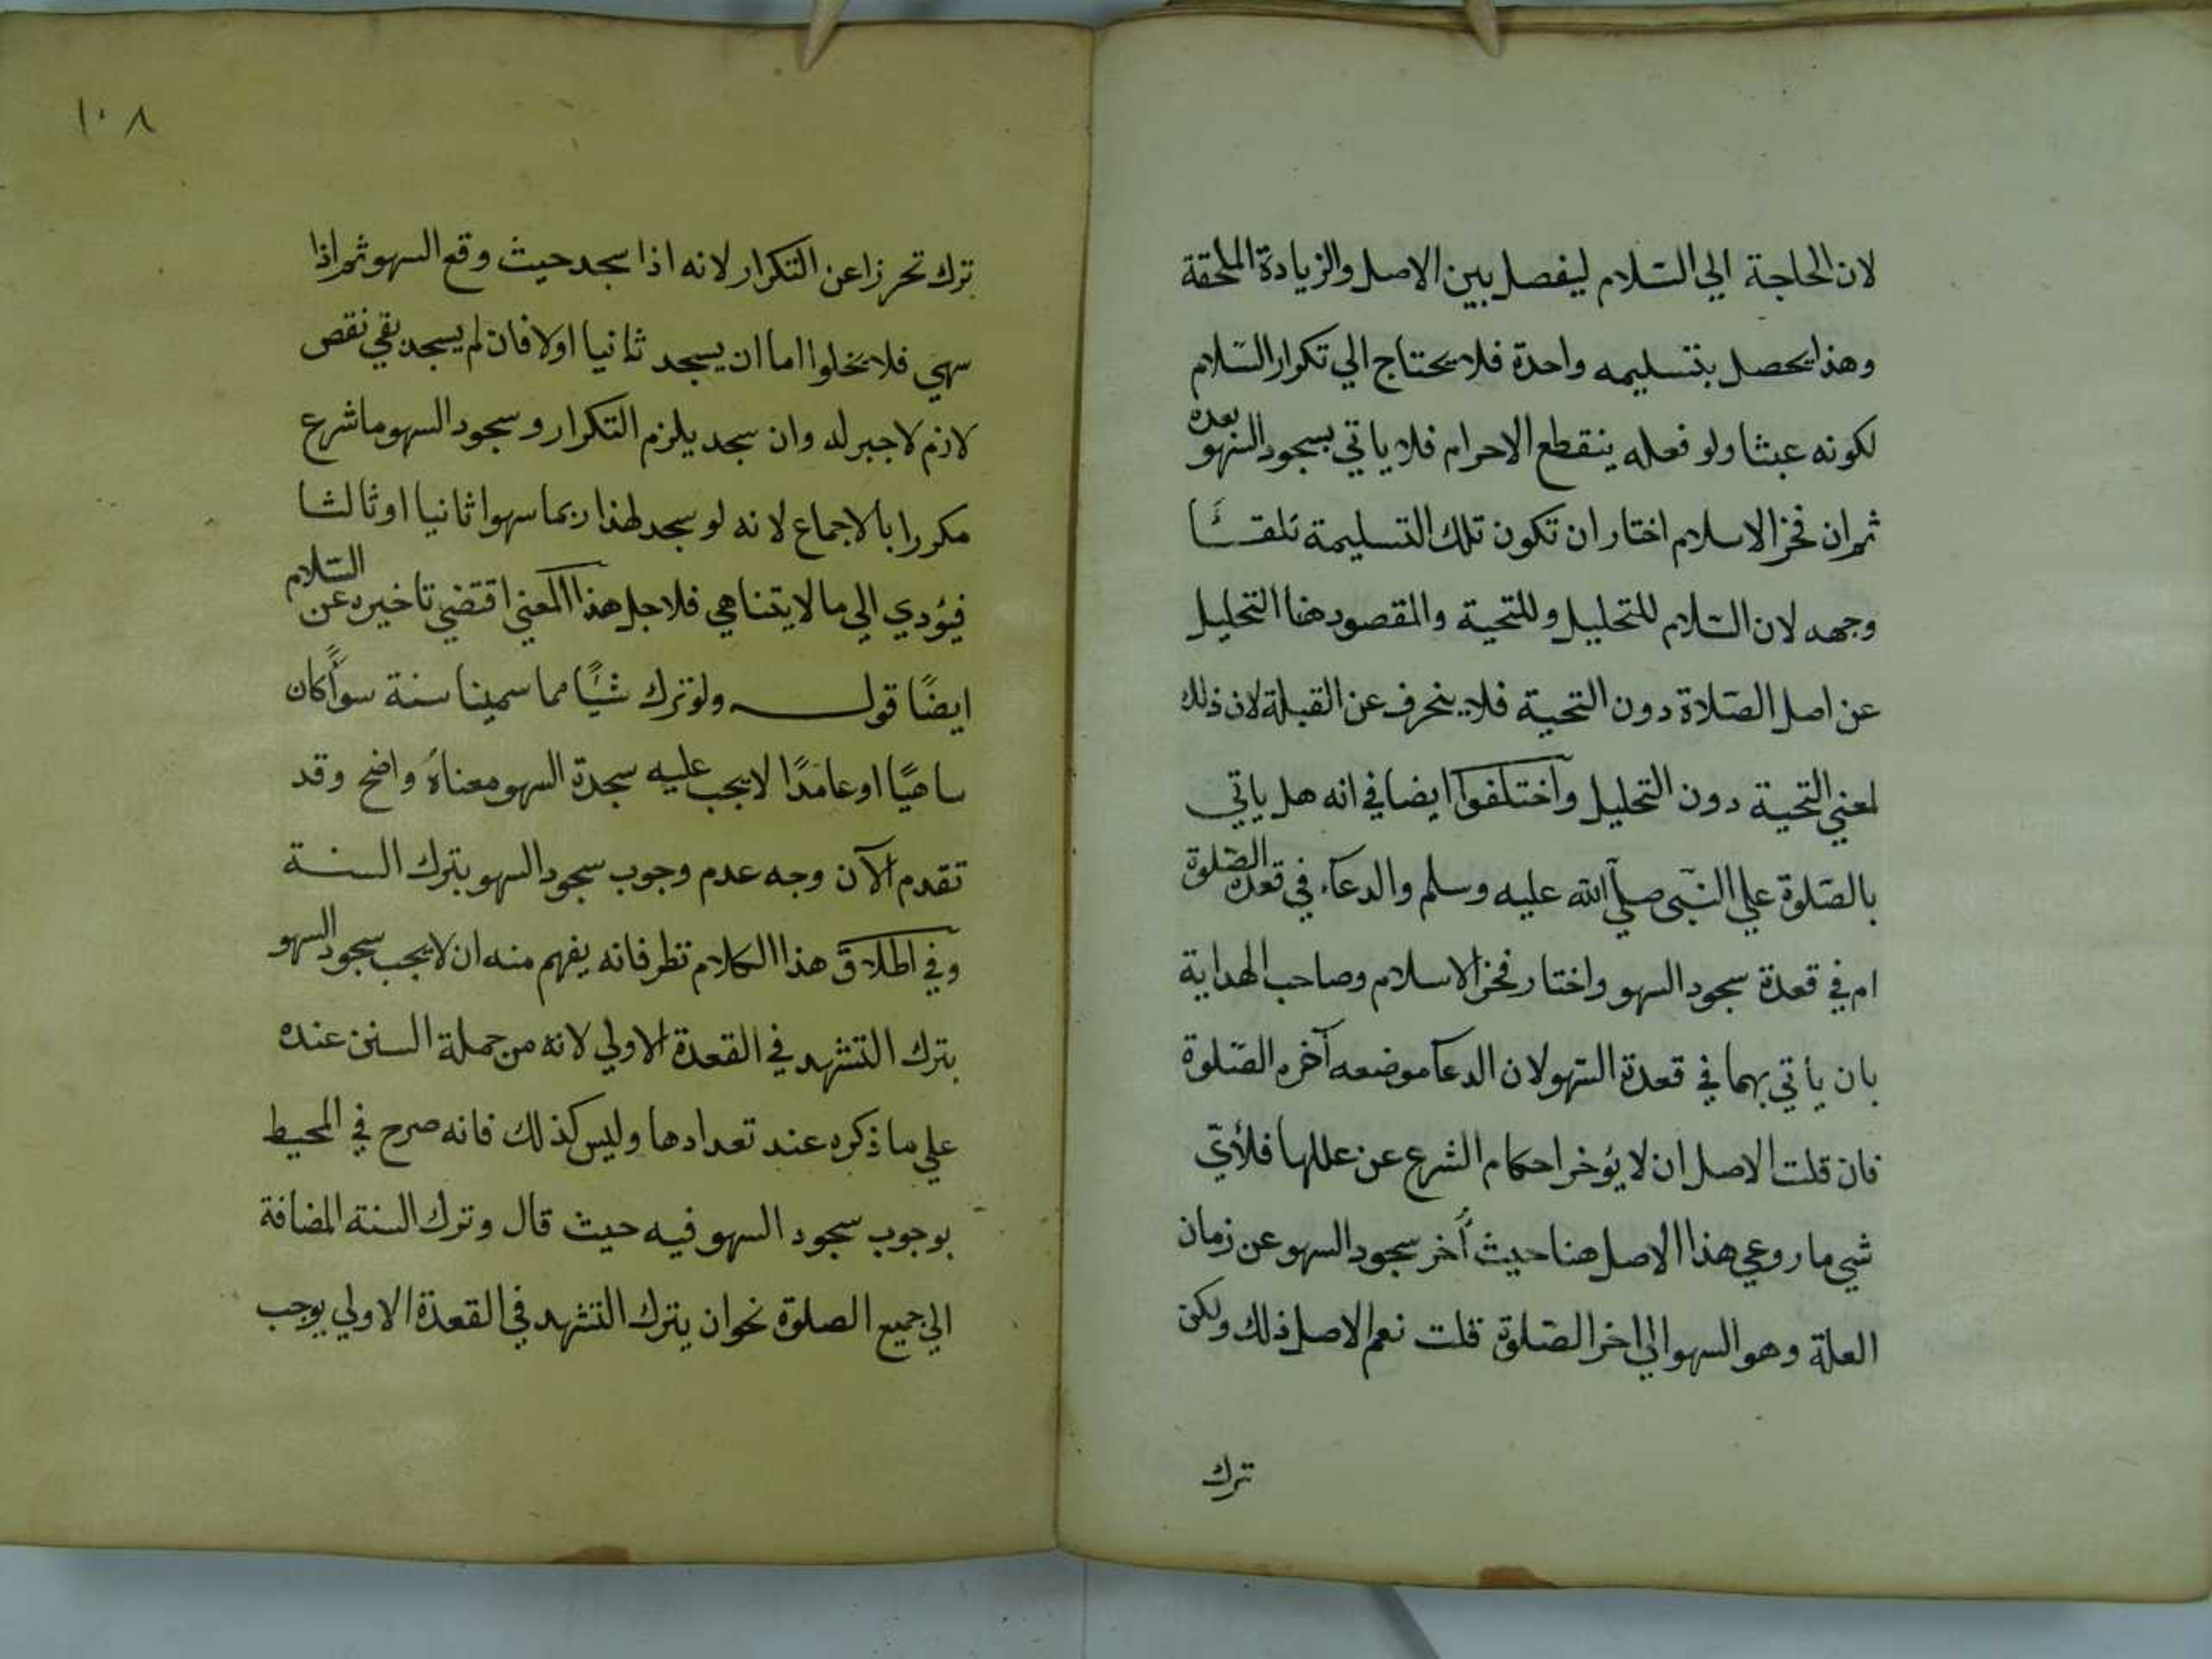 لان الحاجة الي السّلام ليفصل بين الاصل والزيادة الملحقة
وهذا يحصل بتسليمه واحدة فلا يحتاج الي تكرار السّلام
لكونه عبثا ولو فعله ينقطع الاحرام فلا ياتي بسجود السهو بعده
ثم ان فخر الاسلام اختار ان تكون تلك التسليمة تلقــا
وجهه لان السّلام للتحليل وللتحية والمقصود هنا التحليل
عن اصل الصّلاة دون التحية فلا ينحرف عن القبلة لان ذلك
لمعني التحية دون التحليل واختلفوا ايضا في انه هل ياتي
بالصّلوة علي النّبي صلي الله عليه وسلم والدعاء في قعدة الصّلوة
ام في قعدة سجود السهو واختار فخر الاسلام وصاحب الهداية
بان ياتي بهما في قعدة السّهو لان الدعا موضعه آخره الصّلوة
فان قلت الاصل ان لا يؤخر احكام الشرع عن عللها فلأيّ
شي ما روعي هذا الاصل هنا حيث أُخر سجود السهو عن زمان
العلة وهو السهو الي اخر الصّلوة قلت نعم الاصل ذلك ولكن
ترك
١٠٨
ترك تحرزا عن التكرار لانه اذا سجد حيث وقع السهو ثم اذا
سهي فلا يخلوا اما ان يسجد ثانيا اولا فان لم يسجد بقي نقص
لازم لا جبر له وان سجد يلزم التكرار وسجود السهو ما شرع
مكررا بالاجماع لانه لو سجد لهذا ربما سهوا ثانيا او ثالثا
فيؤدي الي ما لا يتناهي فلاجل هذا المعني اقتضي تاخيره عن السّلام
ايضًا قولــه ولو ترك شيًا مما سمينا سنة سوأً كان
ساهيًا او عامدًا لا يجب عليه سجدة السهو معناهُ واضح وقد
تقدم الآن وجه عدم وجوب سجود السهو بترك السنــة
وفي اطلاق هذا الكلام نظر فانه يفهم منه ان لا يجب سجود السهو
بترك التشهد في القعدة الاولي لانه من جملة السنن عنده
علي ما ذكره عند تعدادها وليس كذلك فانه صرح في المحيط
بوجوب سجود السهو فيه حيث قال وترك السنة المضافة
الي جميع الصلوة نحو ان يترك التشهد في القعدة الاولي يوجب